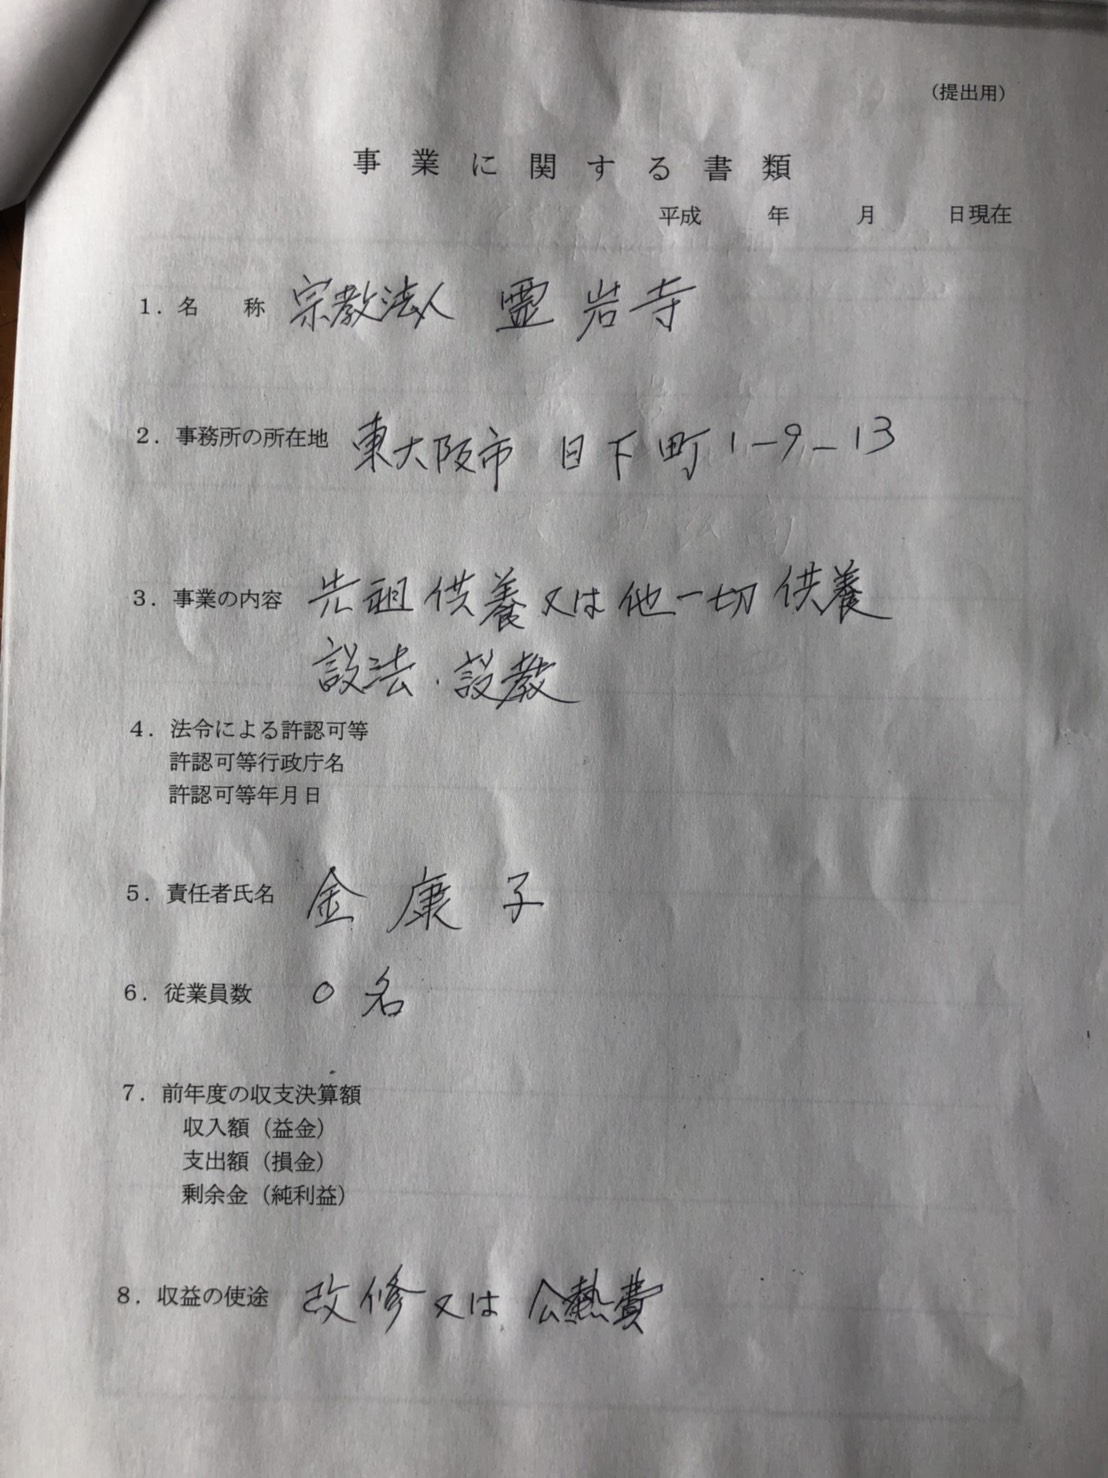 （提出用）
事業に関する書類
平成　　年　　月　　日現在
１．名　称 宗教法人 霊岩寺
２．事務所の所在地 東大阪市 日下町1-9-13
３．事業の内容 先祖供養又は他一切供養
説法・説教
４．法令による許認可等
許認可等行政庁名
許認可等年月日
５．責任者氏名 金康子
６．従業員数 0名
７．前年度の収支決算額
収入額（益金）
支出額（損金）
剰余金（純利益）
８．収益の使途 改修又は公熱費